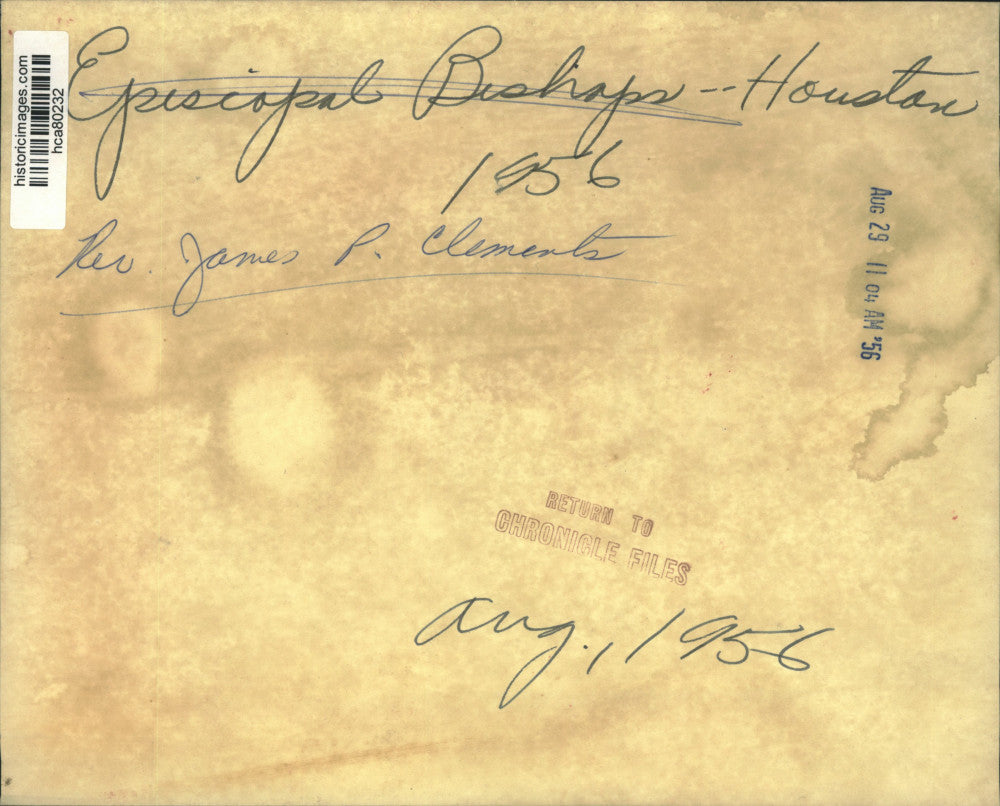 historicimages.com
hca80232
Episcopal Bishops -- Houston
1956
Rev. James P. Clements
AUG 29 11 04 AM '56
RETURN TO
CHRONICLE FILES
Aug., 1956